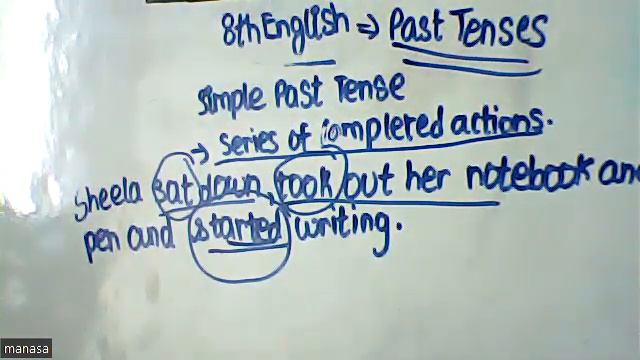 8th English ⇒ Past Tenses
Simple Past Tense
→ series of completed actions.
Sheela sat down, took out her notebook an
pen and started writing.
manasa